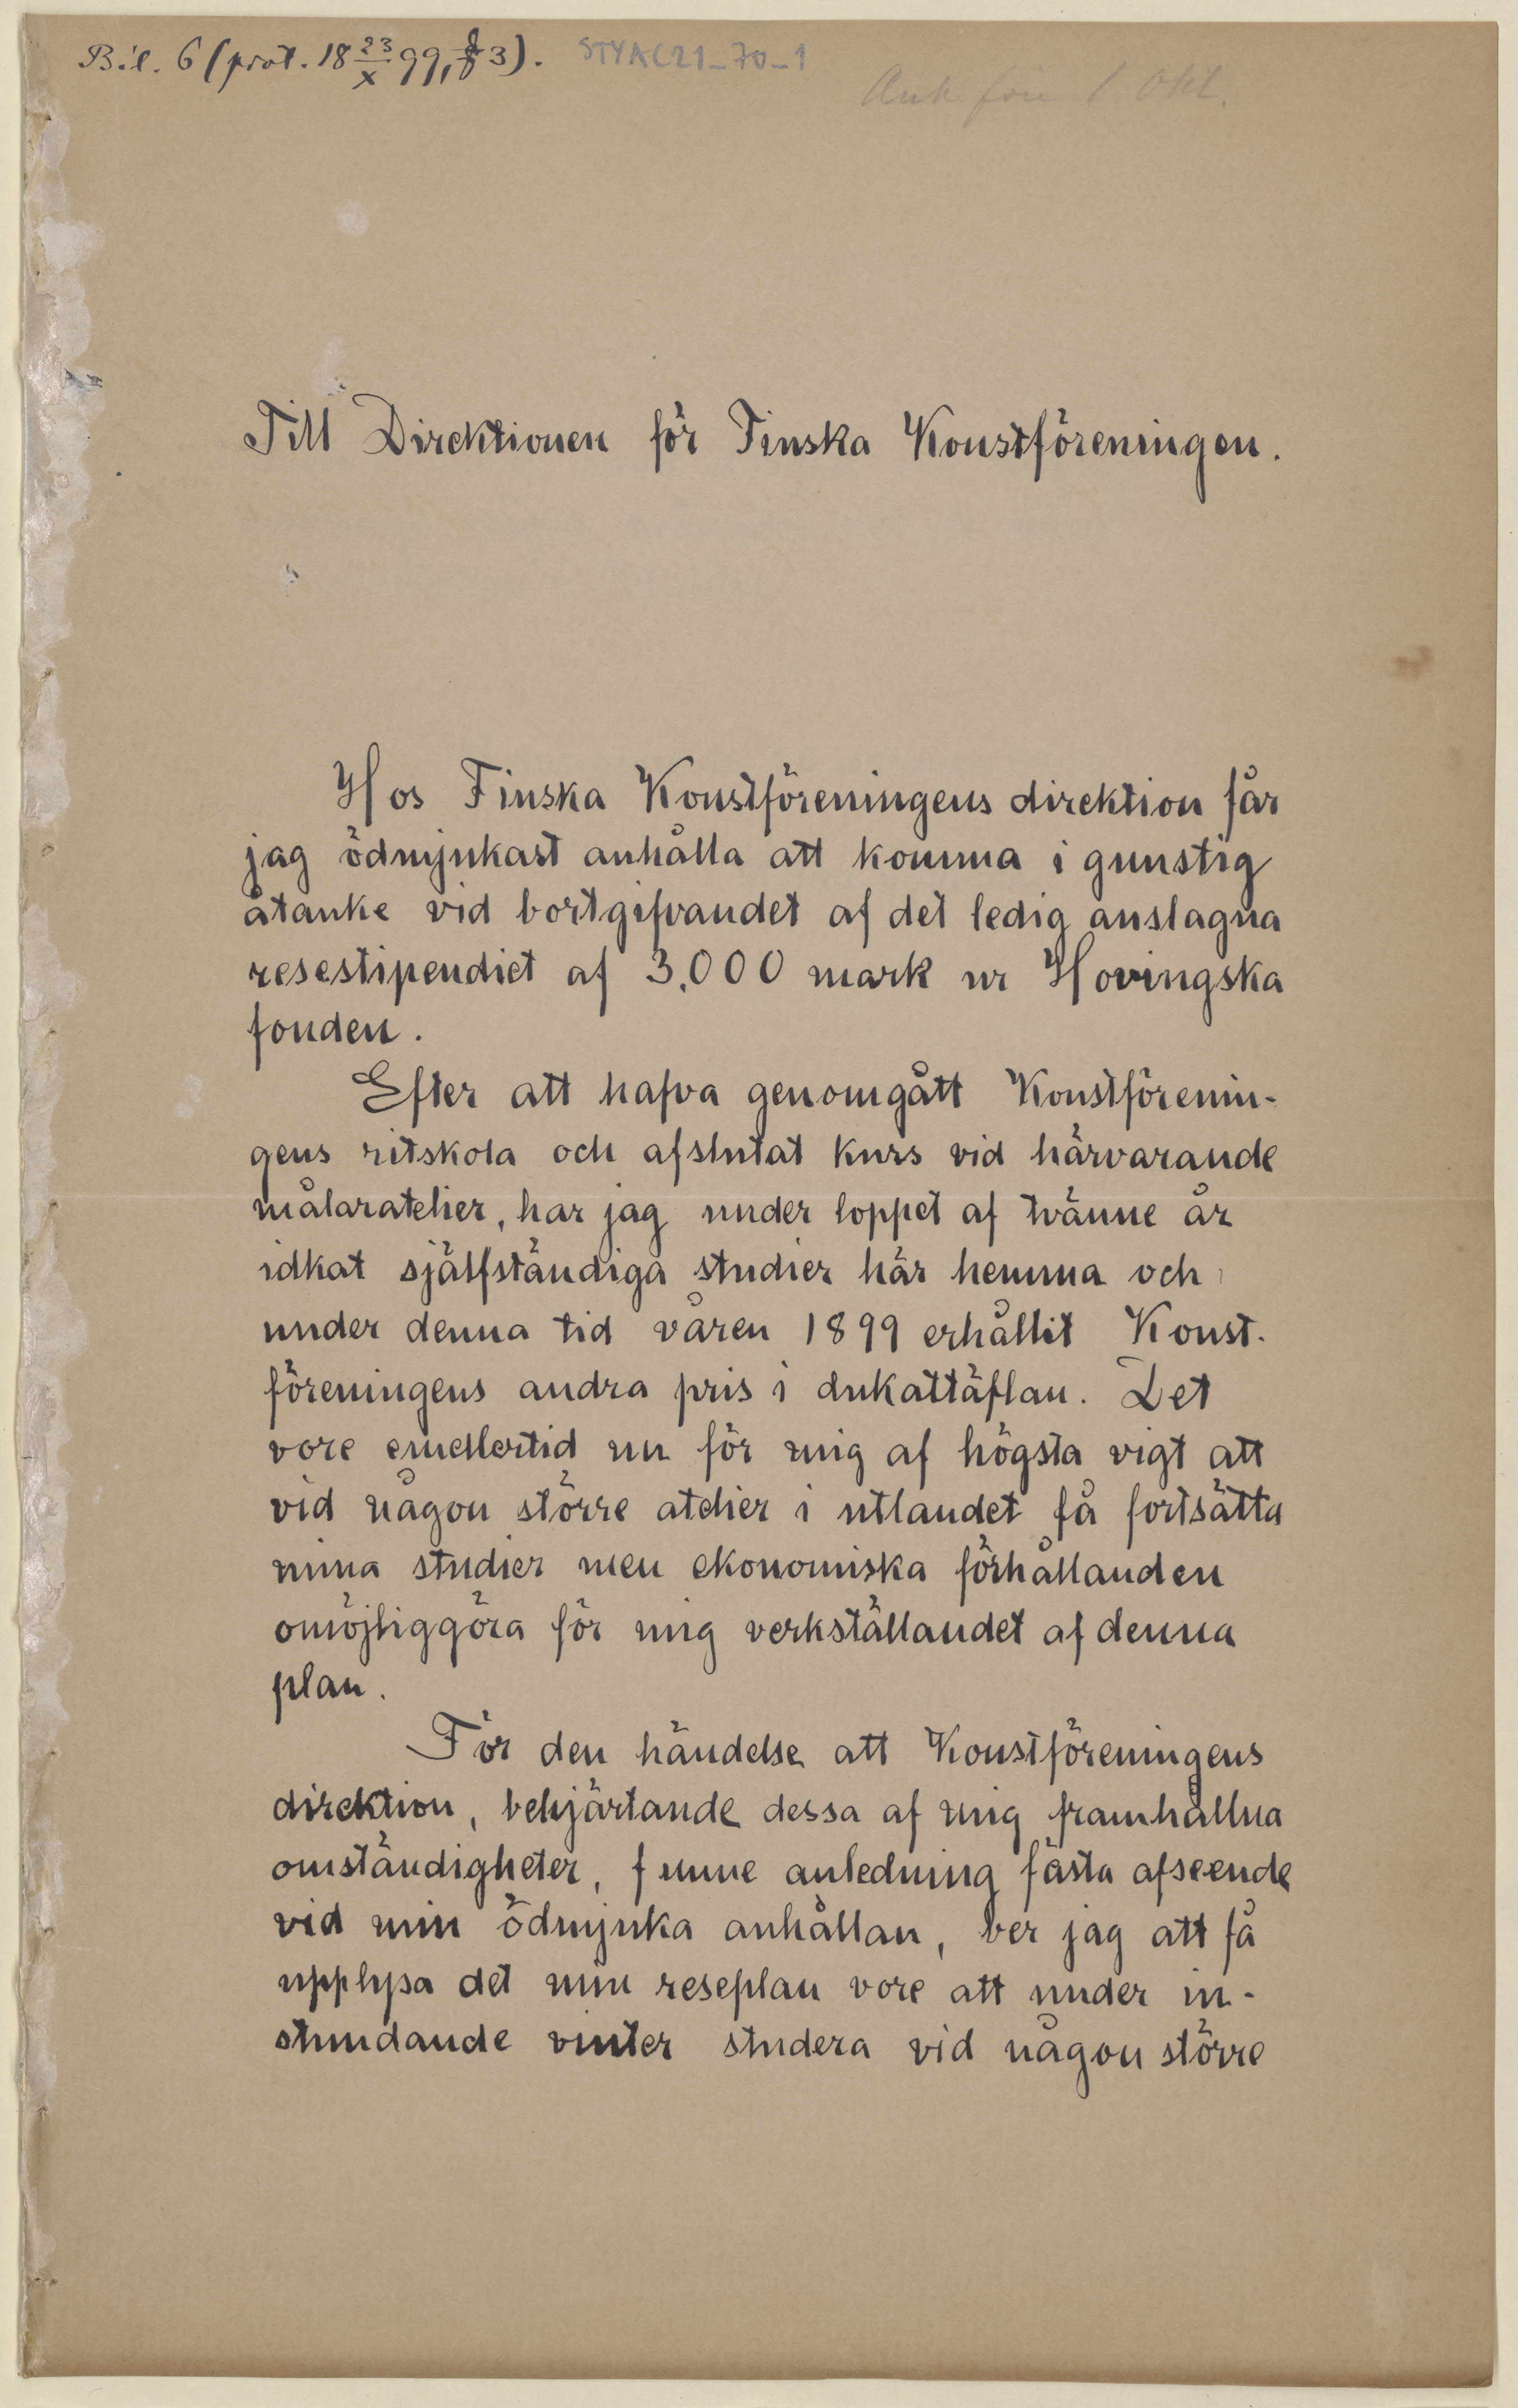 Bil. 6 (prot. 18 23/X 99, § 3). STYAC21_70_1
Ank för 1 Okt.
Till Direktionen för Finska Konstföreningen.
Hos Finska Konstföreningens direktion får
jag ödmjukast anhålla att komma i gunstig
åtanke vid bortgifvandet af det ledig anslagna
resestipendiet af 3.000 mark ur Hovingska
fonden.
Efter att hafva genomgått Konstförenin-
gens ritskola och afslutat kurs vid härvarande
målaratelier, har jag under loppet af tvänne år
idkat själfständiga studier här hemma och
under denna tid våren 1899 erhållit Konst-
föreningens andra pris i dukattäflan. Det
vore emellertid nu för mig af högsta vigt att
vid någon större atelier i utlandet få fortsätta
mina studier men ekonomiska förhållanden
omöjliggöra för mig verkställandet af denna
plan.
För den händelse att Konstföreningens
direktion, behjärtande dessa af mig framhållna
omständigheter, funne anledning fästa afseende
vid min ödmjuka anhållan, ber jag att få
upplysa det min reseplan vore att under in-
stundande vinter studera vid någon större